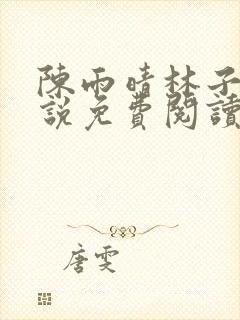 陳雨晴林子
說免費閱讀
唐雯